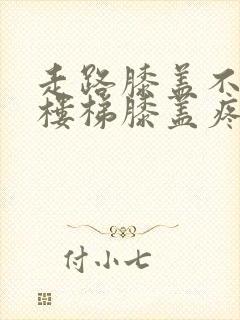 走路膝盖不
楼梯膝盖疼
付小七